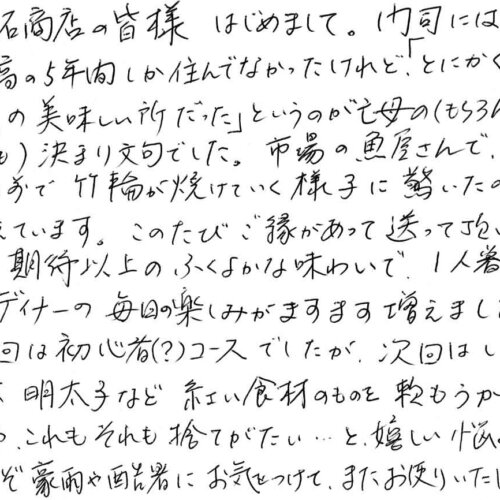 石商店の皆様 はじめまして。門司には
高の5年間しか住んでなかったけれど、「とにかく
の美味しい所だった」というのが亡母の(もちろん
も)決まり文句でした。市場の魚屋さんで、
前で竹輪が焼けていく様子に驚いたの
えています。このたびご縁があって送って頂い
期待以上のふくよかな味わいで、1人暮
ディナーの毎日の楽しみがますます増えまし
回は初心者(?)コースでしたが、次回はし
明太子など紅い食材のものを軟もうか
、これもそれも捨てがたい…と、嬉しい悩み
ぞ豪雨や酷暑にお気をつけて、またお便りいたし